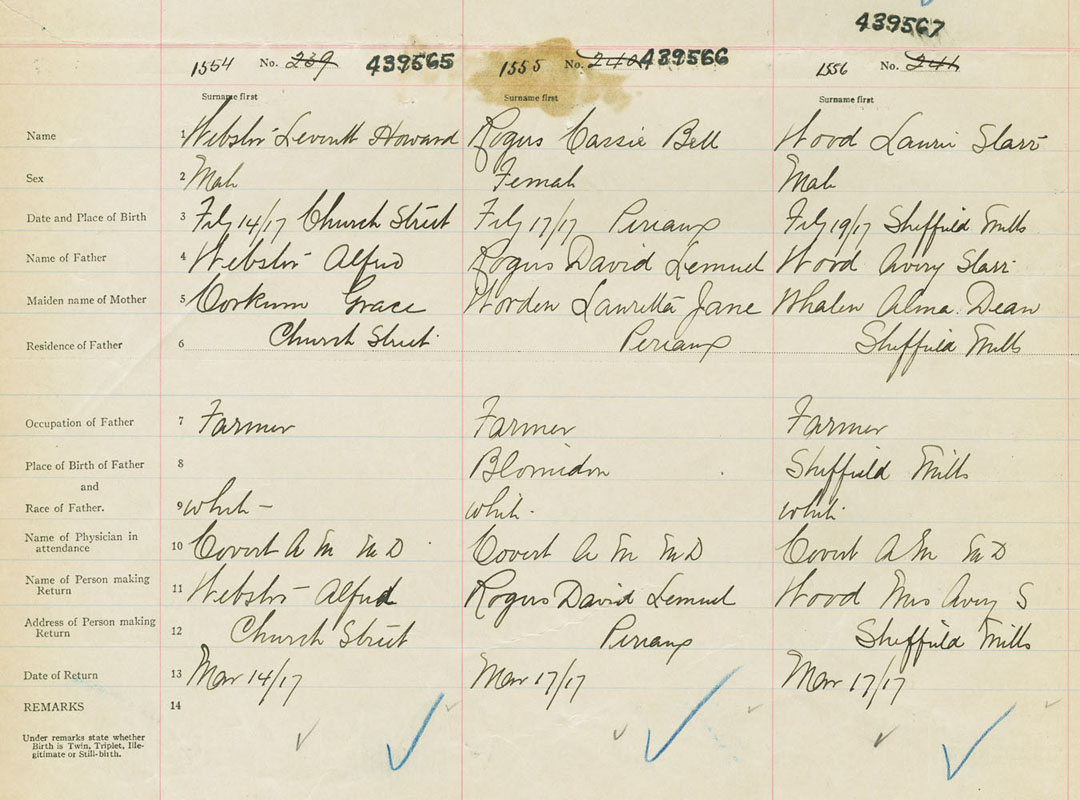 439567
1554 No. 239 439565 1555 No. 240 439566 1556 No. 241
Surname first Surname first Surname first
Name 1 Webster Leverett Howard Rogers Cassie Bell Wood Laurie Starr
Sex 2 Male Female Male
Date and Place of Birth 3 Feby 14/17 Church Street Feby 17/17 Pereaux Feby 19/17 Sheffield Mills
Name of Father 4 Webster Alfred Rogers David Lemuel Wood Avery Starr
Maiden name of Mother 5 Corkum Grace Worden Lauretta Jane Whalen Alma Dean
Residence of Father 6 Church Street Pereaux Sheffield Mills
Occupation of Father 7 Farmer Farmer Farmer
Place of Birth of Father 8 Blomidon Sheffield Mills
and
Race of Father. 9 white - white. white
Name of Physician in attendance 10 Covert A M M D Covert A M M D Covert A M M D
Name of Person making Return 11 Webster Alfred Rogers David Lemuel Wood Mrs Avery S
Address of Person making Return 12 Church Street Pereaux Sheffield Mills
Date of Return 13 Mar 14/17 Mar 17/17 Mar 17/17
REMARKS 14
Under remarks state whether
Birth is Twin, Triplet, Ille-
gitimate or Still-birth.